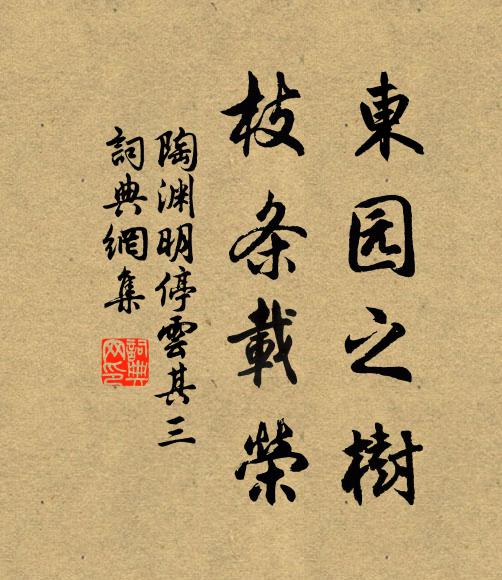 東园之樹
枝条載榮
陶渊明停雲其三
詞典網集
詞典
网印